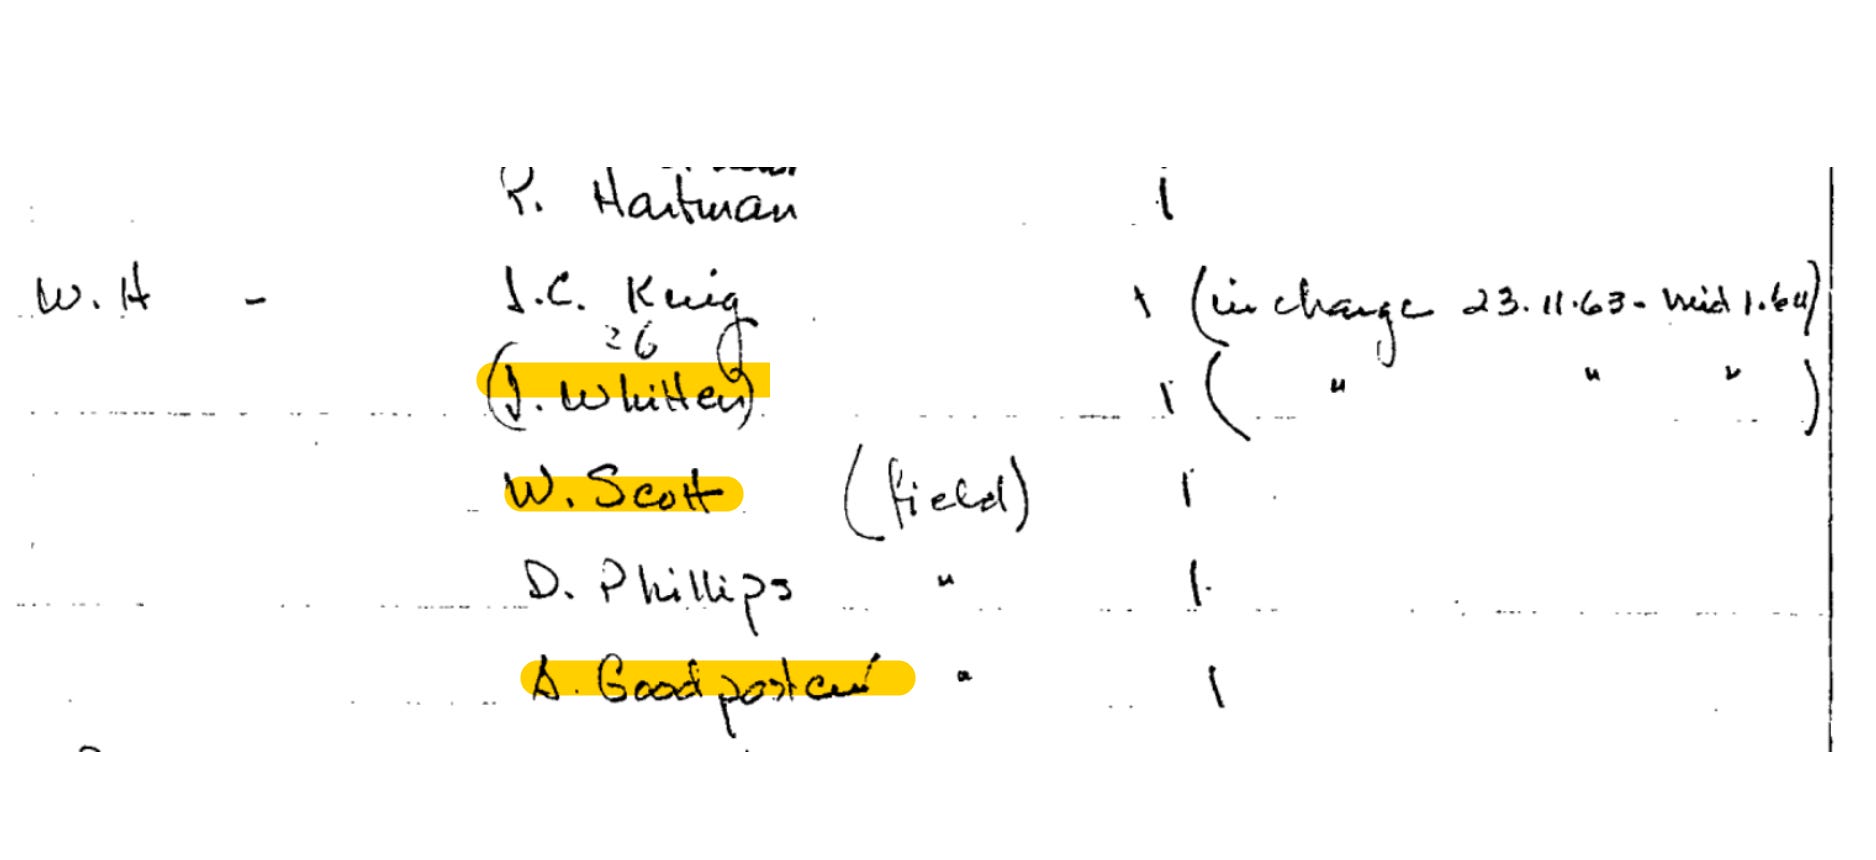 P. Hartman 1
W. H - J.C. King 1 (in charge 23.11.63 - mid 1.64)
26
(J. Whitten) 1 ( " " " )
W. Scott (field) 1
D. Phillips " 1.
A. Goodpasture " 1